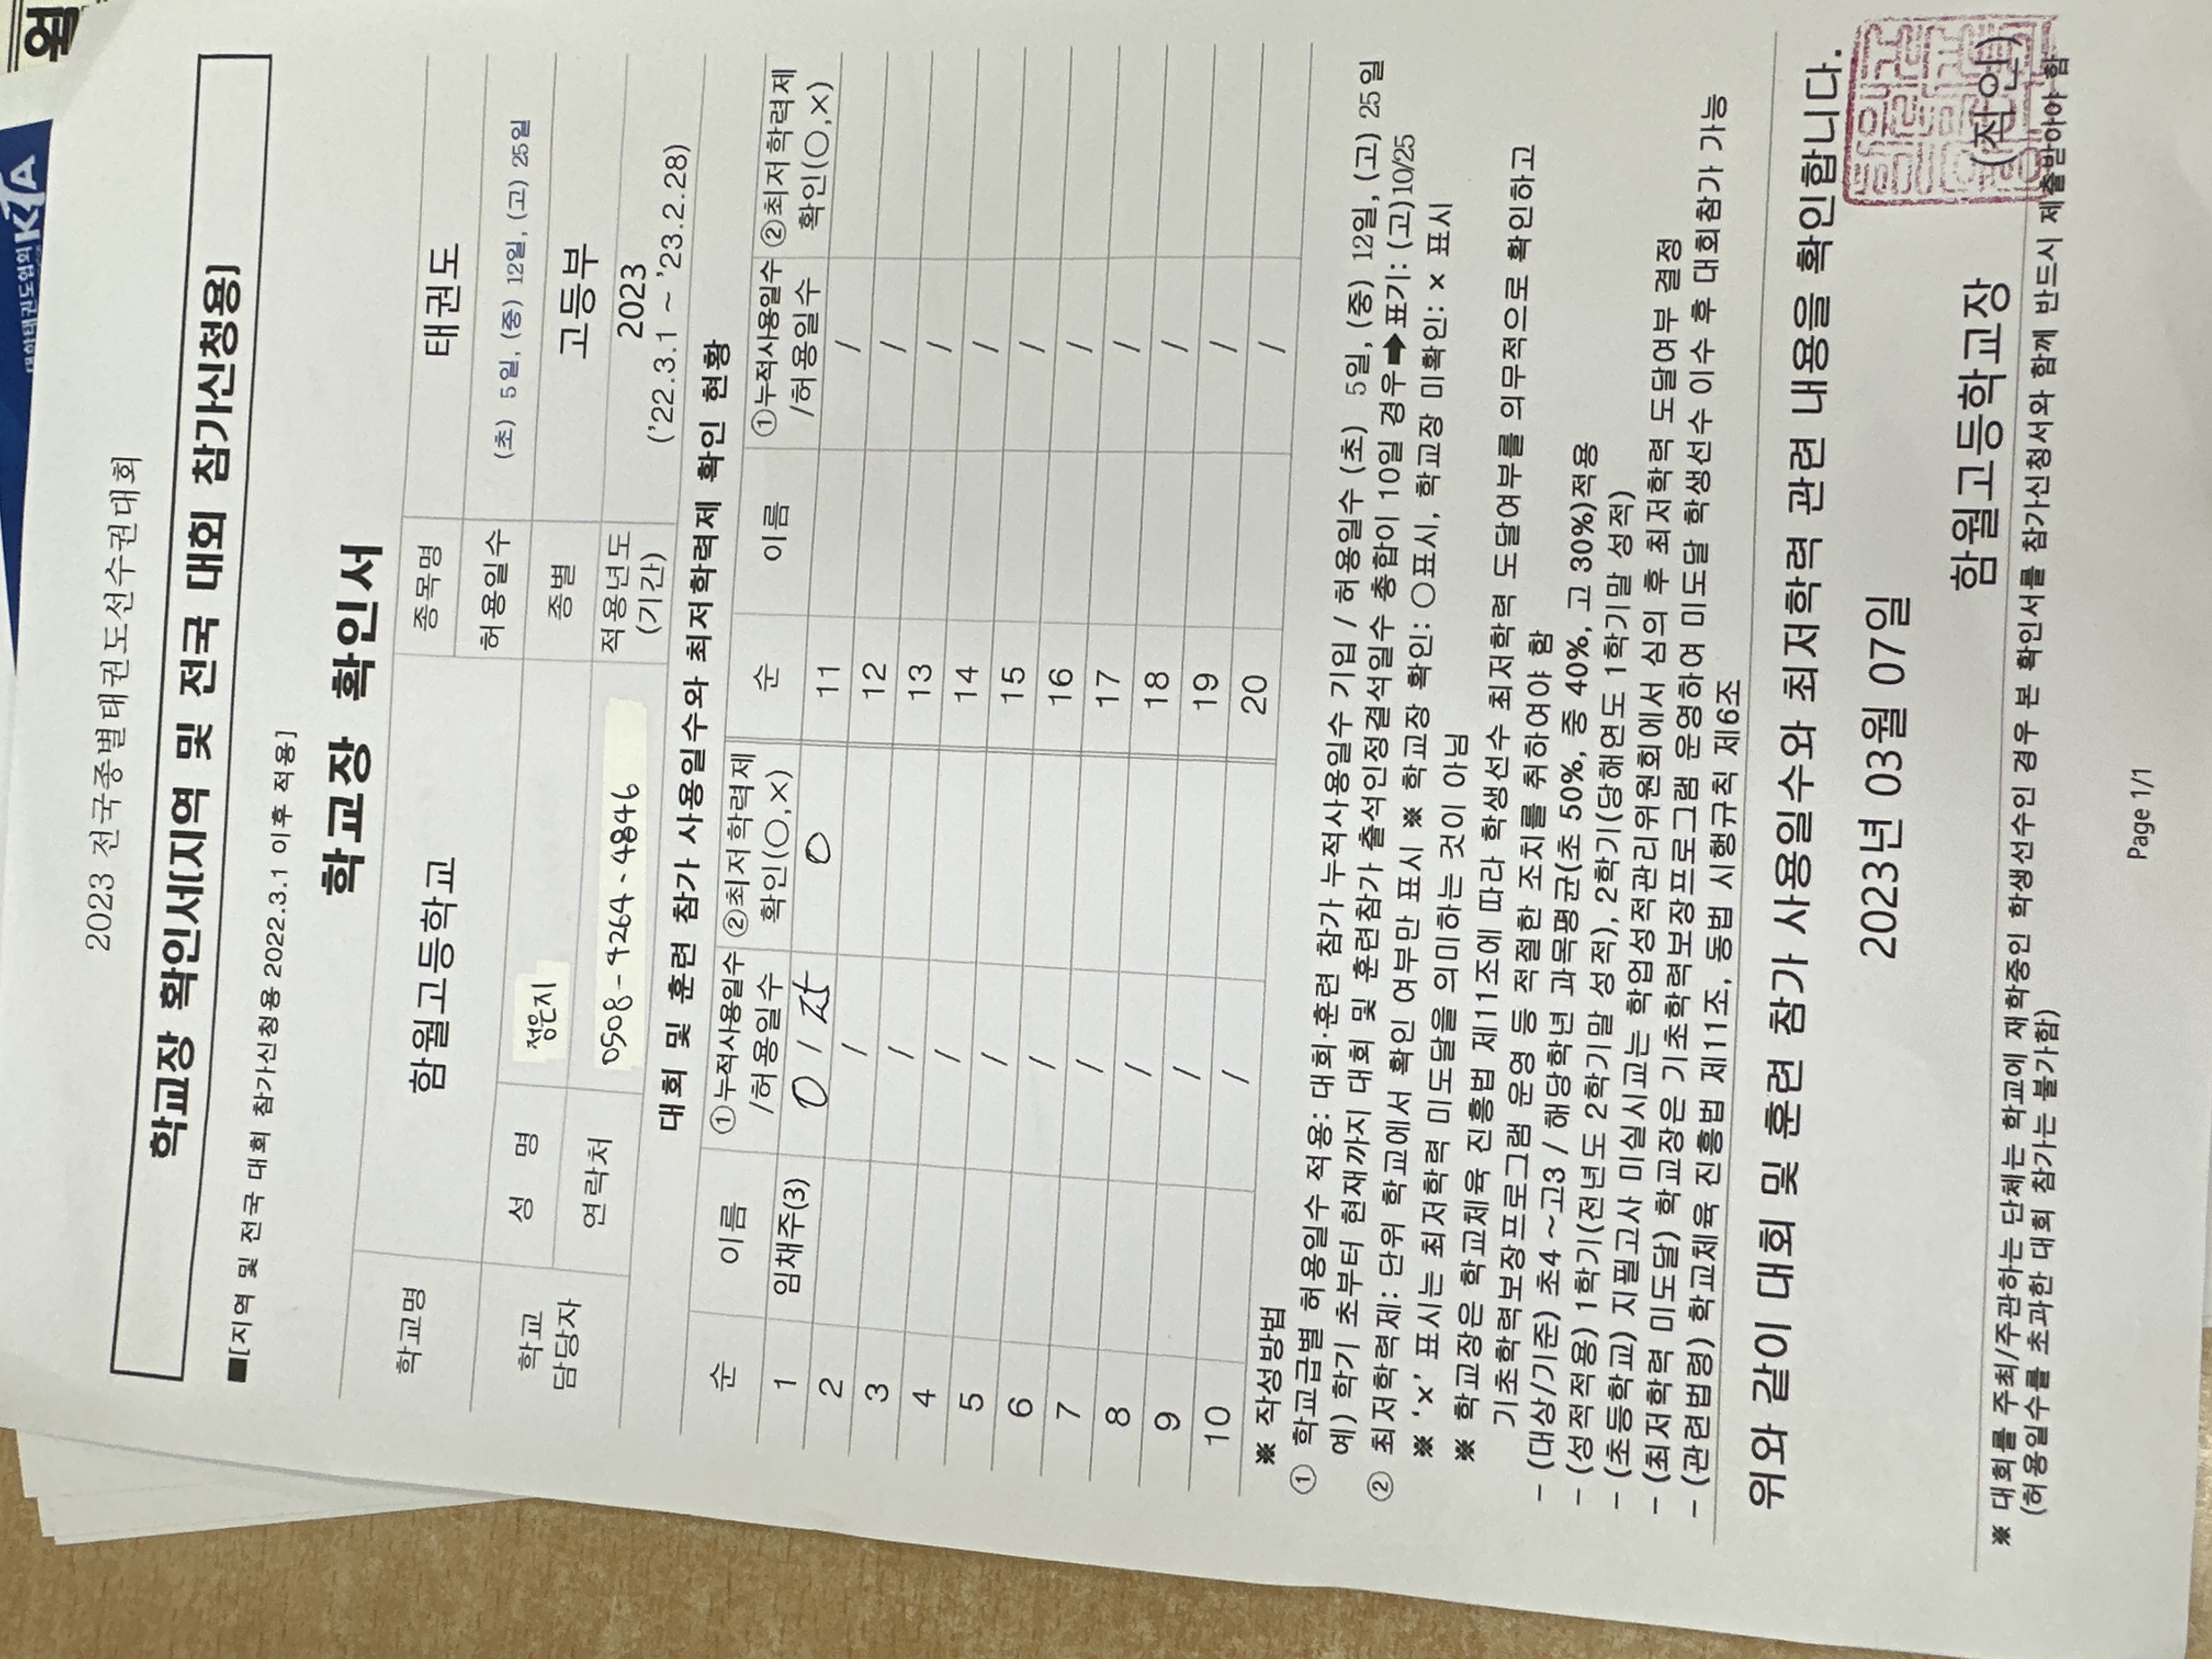 월
대한태권도협회 KTA
2023 전국종별태권도선수권대회
학교장 확인서[지역 및 전국 대회 참가신청용]
■[지역 및 전국 대회 참가신청용 2022.3.1 이후 적용]
학교장 확인서
학교명 함월고등학교 종목명 태권도
허용일수 (초) 5일, (중) 12일, (고) 25일
학교 담당자 성 명 정은지 종별 고등부
연락처 0508-4264-4846 적용년도 (기간) 2023 ('22.3.1 ~ '23.2.28)
대회 및 훈련 참가 사용일수와 최저학력제 확인 현황
순 이름 ①누적사용일수 /허용일수 ②최저학력제 확인(○,×) 순 이름 ①누적사용일수 /허용일수 ②최저학력제 확인(○,×)
1 임채주(3) 0 / 25 0 11 /
2 / 12 /
3 / 13 /
4 / 14 /
5 / 15 /
6 / 16 /
7 / 17 /
8 / 18 /
9 / 19 /
10 / 20 /
※ 작성방법
① 학교급별 허용일수 적용: 대회·훈련 참가 누적사용일수 기입 / 허용일수 (초) 5일, (중) 12일, (고) 25일
예) 학기 초부터 현재까지 대회 및 훈련참가 출석인정결석일수 총합이 10일 경우➡표기: (고)10/25
② 최저학력제: 단위 학교에서 확인 여부만 표시 ※ 학교장 확인: ○표시, 학교장 미확인: × 표시
※ '×' 표시는 최저학력 미도달을 의미하는 것이 아님
※ 학교장은 학교체육 진흥법 제11조에 따라 학생선수 최저학력 도달여부를 의무적으로 확인하고
기초학력보장프로그램 운영 등 적절한 조치를 취하여야 함
- (대상/기준) 초4 ~고3 / 해당학년 과목평균(초 50%, 중 40%, 고 30%)적용
- (성적적용) 1학기(전년도 2학기말 성적), 2학기(당해연도 1학기말 성적)
- (초등학교) 지필고사 미실시교는 학업성적관리위원회에서 심의 후 최저학력 도달여부 결정
- (최저학력 미도달) 학교장은 기초학력보장프로그램 운영하여 미도달 학생선수 이수 후 대회참가 가능
- (관련법령) 학교체육 진흥법 제11조, 동법 시행규칙 제6조
위와 같이 대회 및 훈련 참가 사용일수와 최저학력 관련 내용을 확인합니다.
2023년 03월 07일
함월고등학교장 (직인)
※ 대회를 주최/주관하는 단체는 학교에 재학중인 학생선수인 경우 본 확인서를 참가신청서와 함께 반드시 제출받아야 함
(허용일수를 초과한 대회 참가는 불가함)
Page 1/1